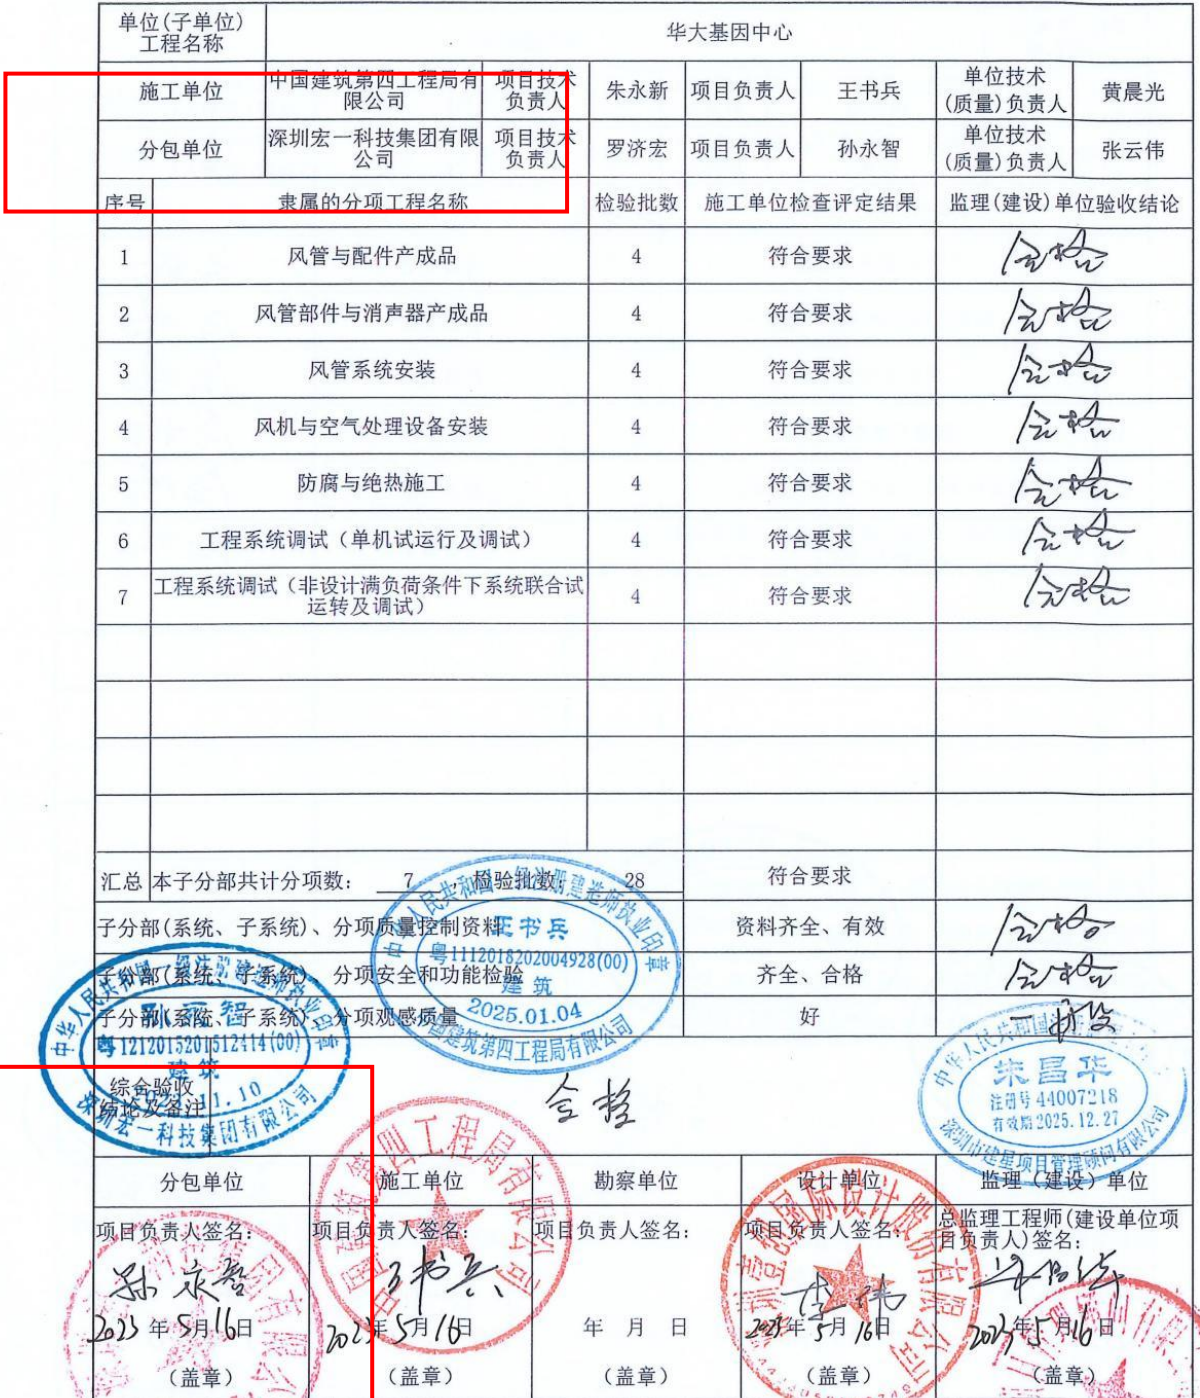 单位(子单位)
工程名称
华大基因中心
施工单位
中国建筑第四工程局有
限公司
项目技术
负责人
朱永新
项目负责人
王书兵
单位技术
(质量)负责人
黄晨光
分包单位
深圳宏一科技集团有限
公司
项目技术
负责人
罗济宏
项目负责人
孙永智
单位技术
(质量)负责人
张云伟
序号 隶属的分项工程名称 检验批数 施工单位检查评定结果 监理(建设)单位验收结论
1 风管与配件产成品 4 符合要求 合格
2 风管部件与消声器产成品 4 符合要求 合格
3 风管系统安装 4 符合要求 合格
4 风机与空气处理设备安装 4 符合要求 合格
5 防腐与绝热施工 4 符合要求 合格
6 工程系统调试（单机试运行及调试） 4 符合要求 合格
7 工程系统调试（非设计满负荷条件下系统联合试
运转及调试）
4 符合要求 合格
汇总 本子分部共计分项数: 7 ，检验批数: 28 符合要求
子分部(系统、子系统)、分项质量控制资料 资料齐全、有效 合格
子分部(系统、子系统)、分项安全和功能检验 齐全、合格 合格
子分部(系统、子系统)、分项观感质量 好 一般
中华人民共和国一级注册建造师执业印章
王书兵
粤1112018202004928(00)
建筑
2025.01.04
中国建筑第四工程局有限公司
中华人民共和国一级注册建造师执业印章
孙永智
粤1212015201512414(00)
建筑
11.10
深圳宏一科技集团有限公司
中华人民共和国
朱昌华
注册号 44007218
有效期 2025.12.27
深圳市建星项目管理顾问有限公司
综合验收
结论及备注
合格
分包单位 施工单位 勘察单位 设计单位 监理（建设）单位
项目负责人签名: 项目负责人签名: 项目负责人签名: 项目负责人签名: 总监理工程师(建设单位项
目负责人)签名:
孙永智 王书兵 李伟 朱昌华
2023年5月16日 2023年5月16日 年 月 日 2023年5月16日 2023年5月16日
(盖章) (盖章) (盖章) (盖章) (盖章)